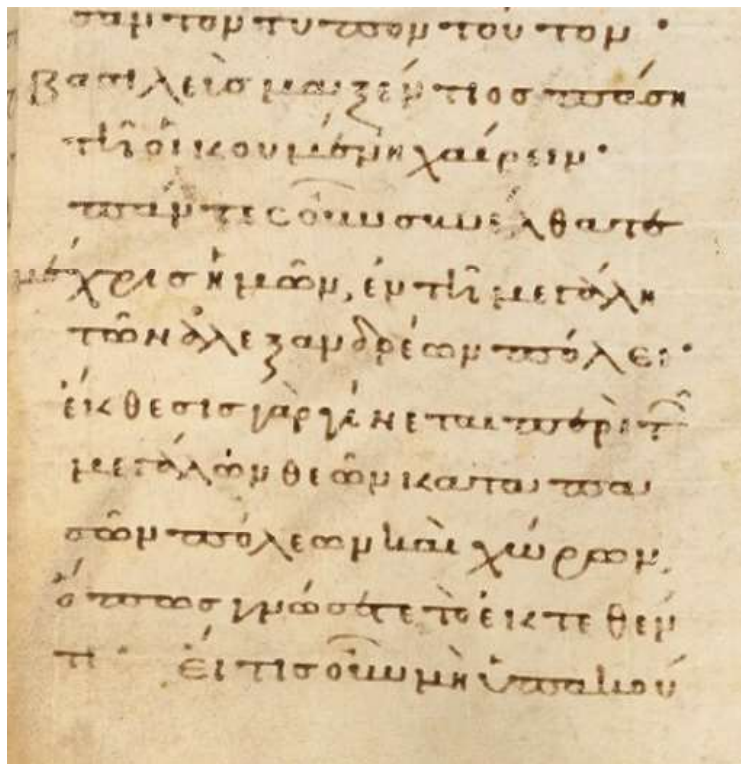 σαντοντυπον τοῦτον·
βασιλεὺσ μαξέντιοσ πάση
τῆ οἰκουμένη χαίρειν·
πάντεσ οὖν συνέλθατε
μέχρισ ἡμῶν, ἐν τῆ μεγάλη
τῶν ἀλεξανδρέων πόλει·
ἔκθεσισ γὰρ γένεται περὶ τῶν
μεγάλων θεῶν κατα πα
σῶν πόλεων καὶ χώρων,
ὅπωσ γνώσατε τὸ ἐκτεθέν
τι· εἴ τισ οὖν μὴ ὑπακού